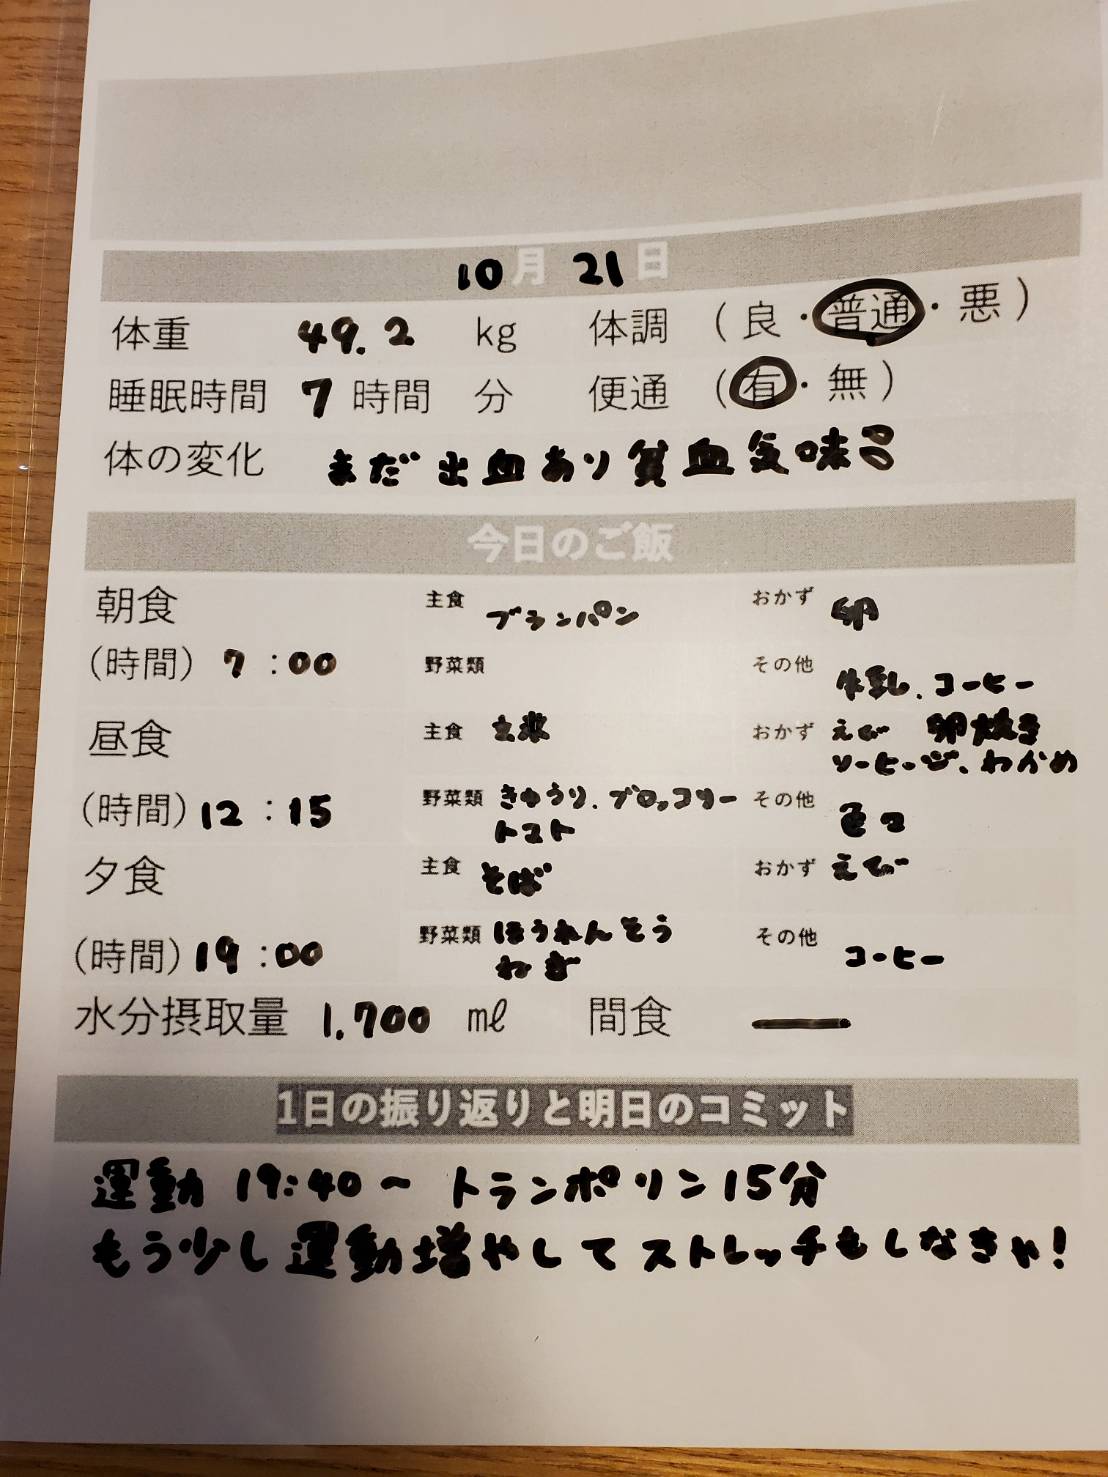 10月 21日
体重 49.2 kg 体調 (良・普通・悪)
睡眠時間 7 時間 分 便通 (有・無)
体の変化 まだ出血あり貧血気味
今日のご飯
朝食 主食 ブランパン おかず 卵
(時間) 7:00 野菜類 その他 牛乳、コーヒー
昼食 主食 玄米 おかず えび 卵焼き
ソーセージ、わかめ
(時間) 12:15 野菜類 きゅうり、ブロッコリー その他
トマト
夕食 主食 そば おかず えび
(時間) 19:00 野菜類 ほうれんそう その他 コーヒー
ねぎ
水分摂取量 1,700 ml 間食 ー
1日の振り返りと明日のコミット
運動 19:40〜 トランポリン15分
もう少し運動増やしてストレッチもしなきゃ!